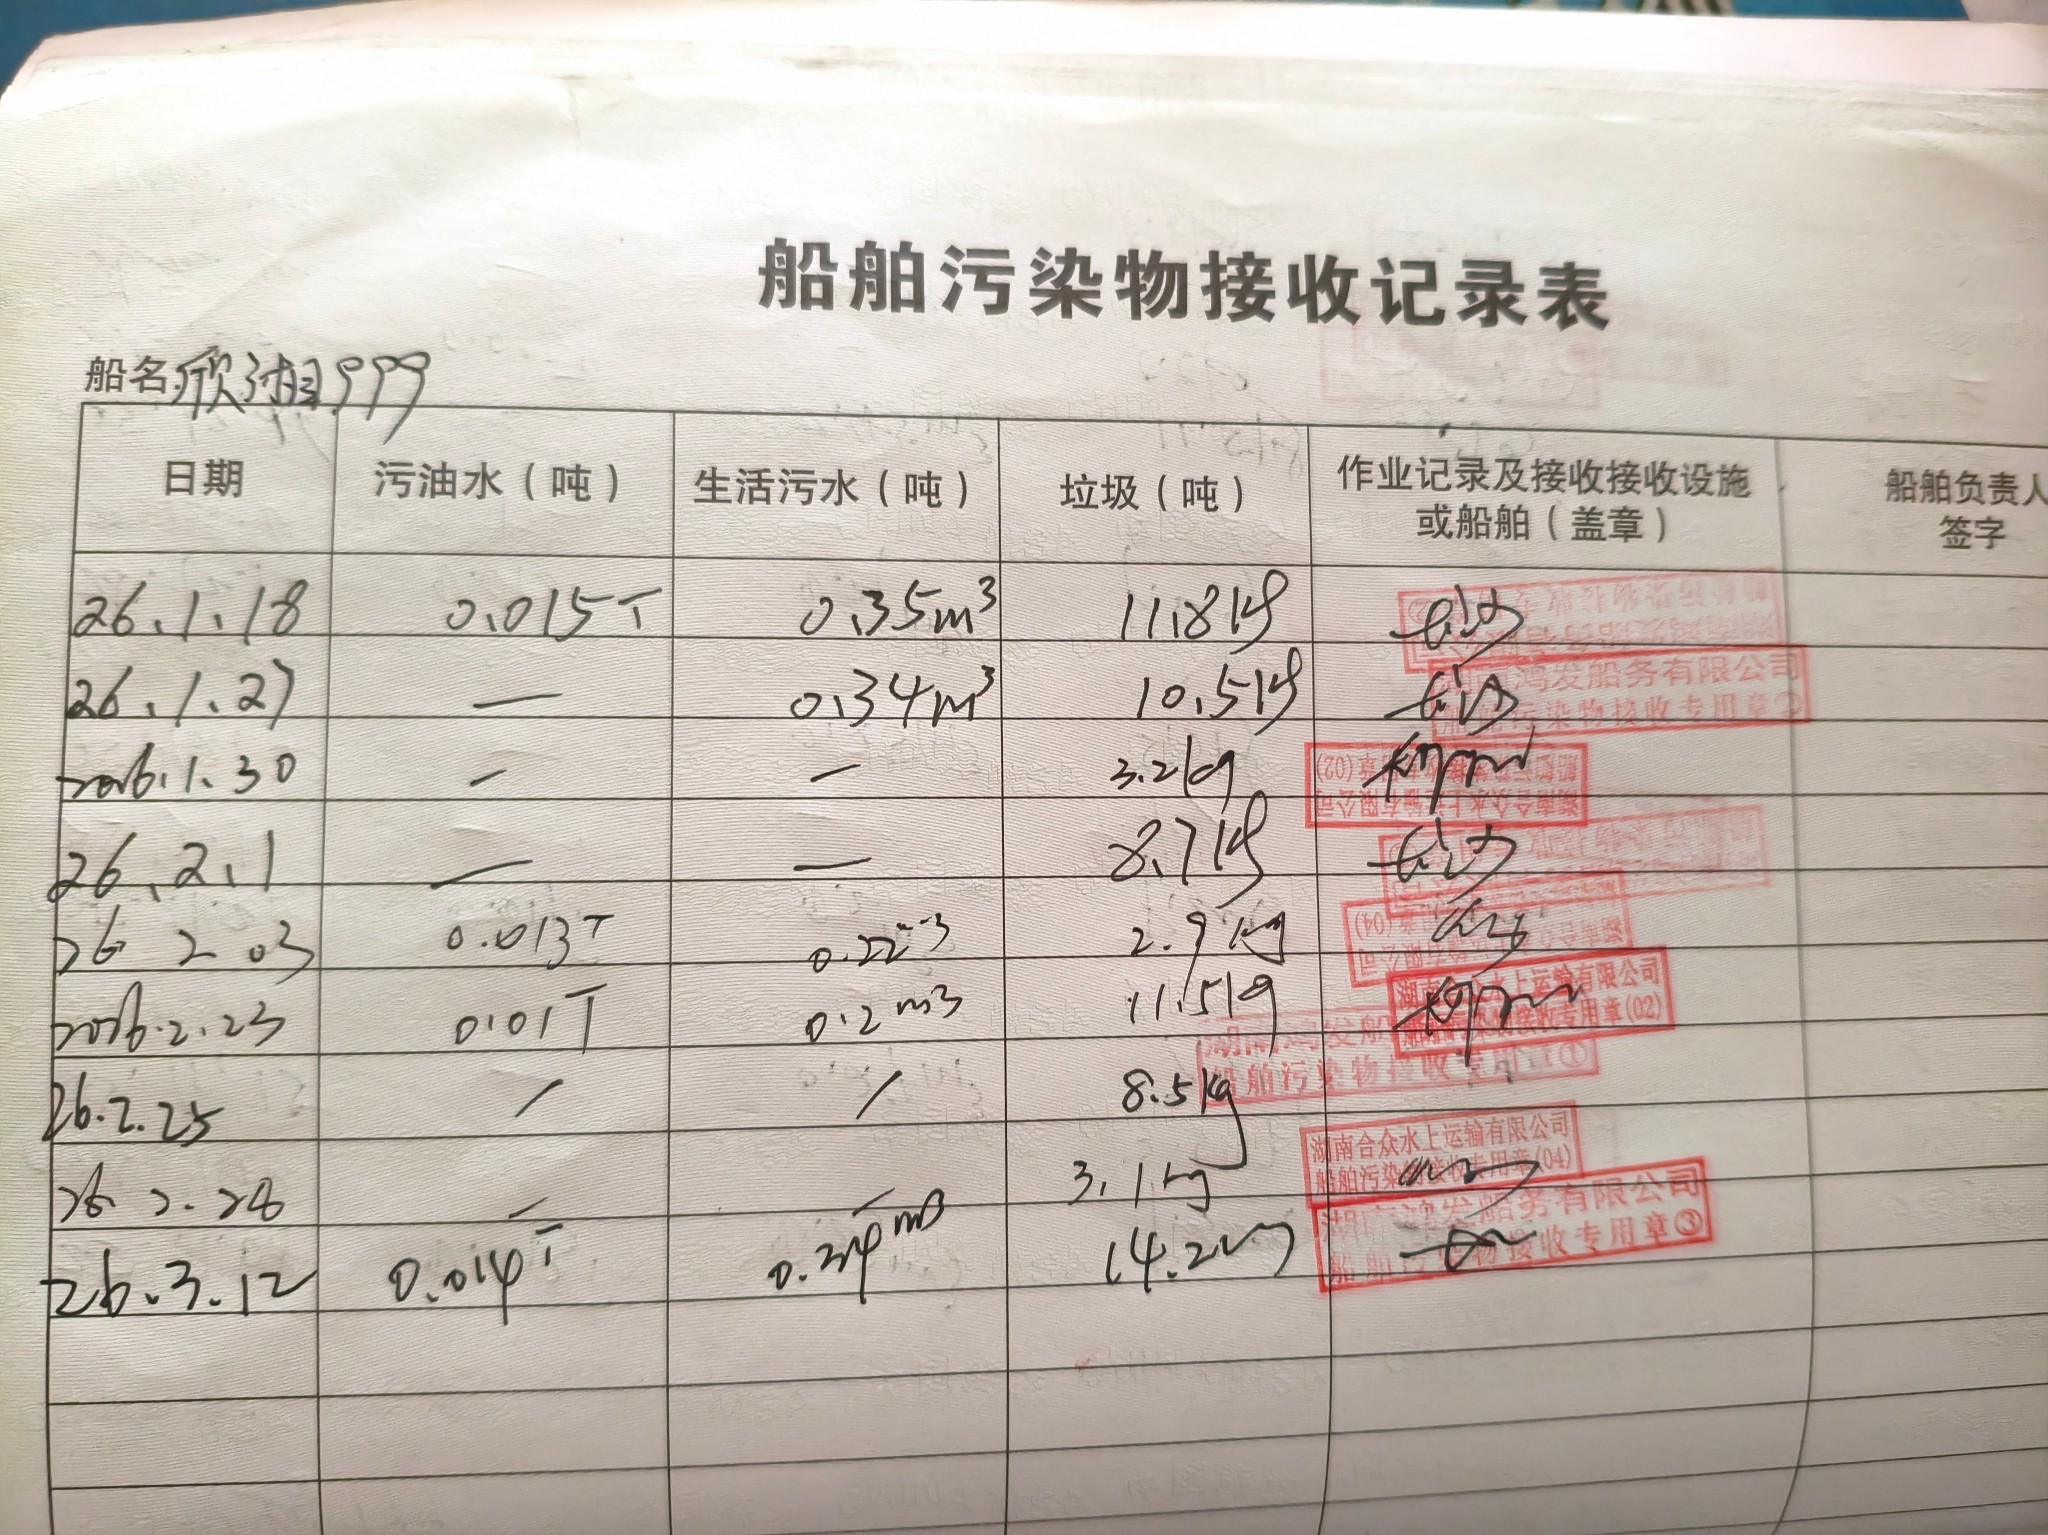 船舶污染物接收记录表
船名 欣湘999
日期 污油水（吨） 生活污水（吨） 垃圾（吨） 作业记录及接收接收设施或船舶（盖章） 船舶负责人签字
26.1.18 0.015T 0.35m³ 11.8kg 长沙
26.1.27 — 0.34m³ 10.5kg 长沙 鸿发船务有限公司 船舶污染物接收专用章
2026.1.30 — — 3.2kg 湖南合众水上运输有限公司 船舶污染物接收专用章(02)
26.2.1 — — 8.7kg 长沙
26 2 03 0.013T 0.22m3 2.9kg (04)
2026.2.23 0.01T 0.2m3 11.5kg 湖南 水上运输有限公司 接收专用章(02)
26.2.25 / / 8.5kg 湖南鸿发船 船舶污染物接收专用章①
26 2.28 — — 3.1kg 湖南合众水上运输有限公司 船舶污染物接收专用章(04)
26.3.12 0.014T 0.34m3 14.2kg 湖南鸿发船务有限公司 船舶污染物接收专用章③